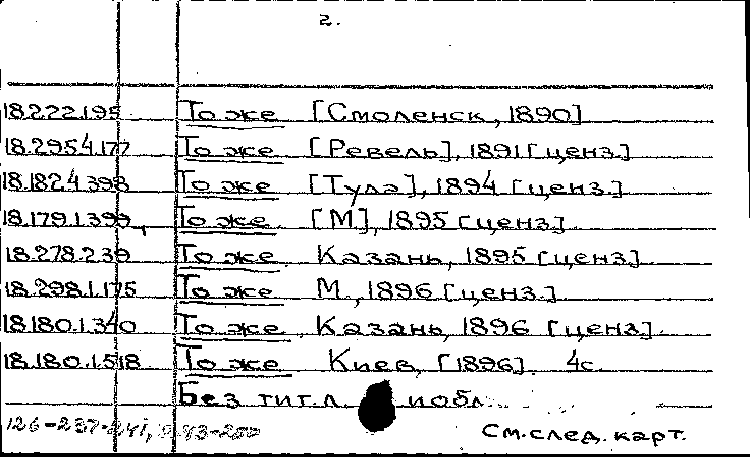 2.
18.222.195 То же [Смоленск, 1890]
18.295.4.177 То же [Ревель], 1891 [ценз.]
18.182.4.398 То же [Тула], 1894 [ценз.]
18.179.1.399, То же [М], 1895 [ценз]
18.278.2.39 То же Казань, 1895 [ценз]
18.298.1.175 То же М., 1896 [ценз.]
18.180.1.340 То же Казань, 1896 [ценз].
18.180.1.518 То же Киев, [1896]. 4с.
Без тит.л. и обл.
126-237-241,
См. след. карт.